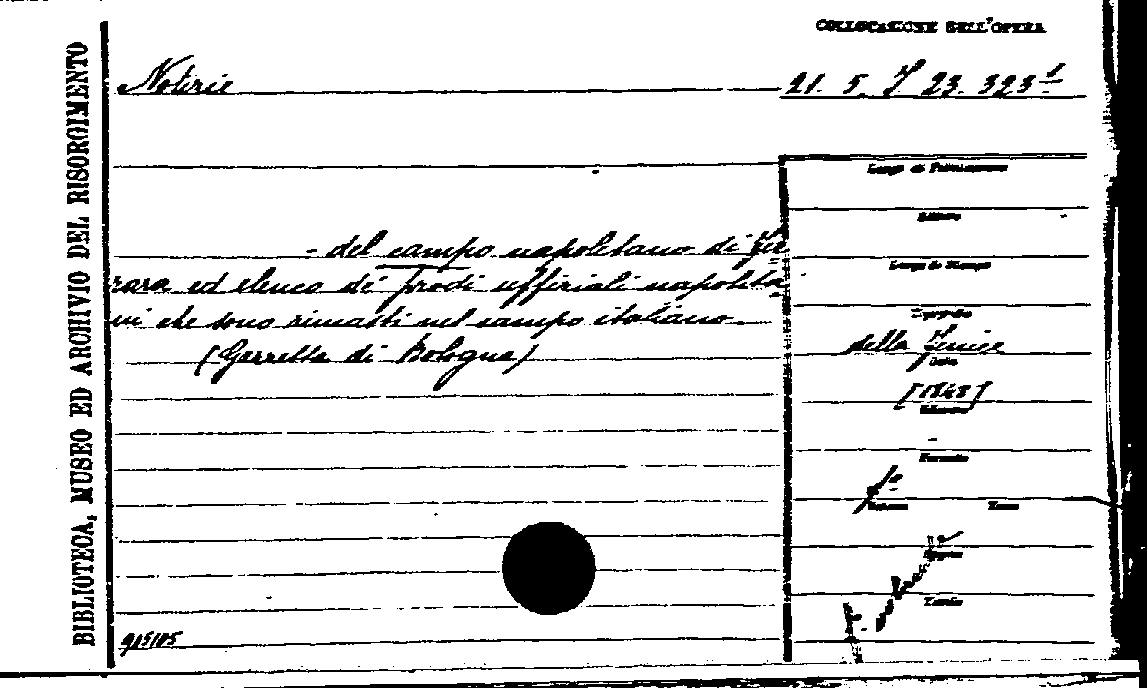 COLLOCAZIONE DELL'OPERA
BIBLIOTECA, MUSEO ED ARCHIVIO DEL RISORGIMENTO
Notizie
21. 5. I 23. 323 1
- del campo napoletano di Fer
rara ed elenco dei prodi uffiziali napolita
ni che sono rimasti nel campo italiano.
(Gazzetta di Bologna)
Luogo di Pubblicazione
Editore
Luogo di Stampa
Tipografia
della Fenice
Data
[1848]
Volume
-
Formato
f.o
Tomo
Tavole
F. volante